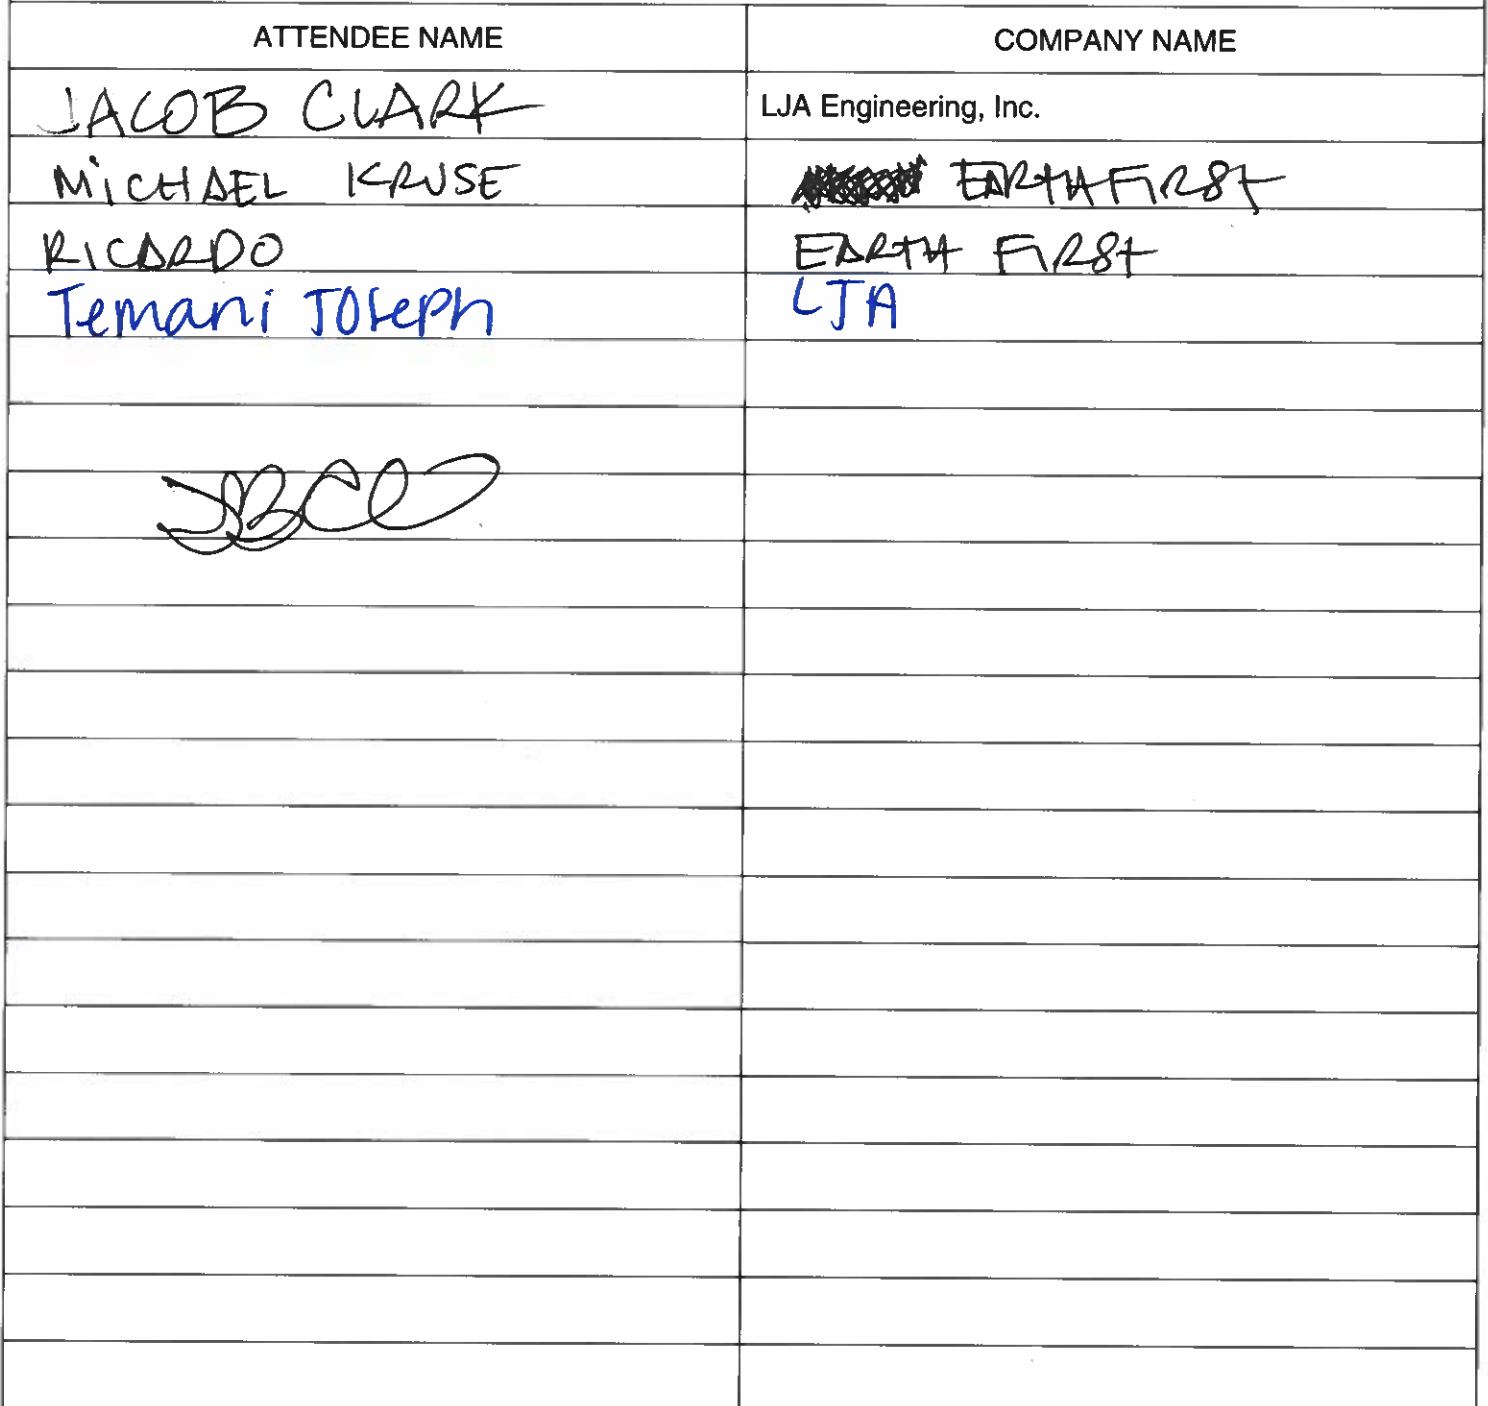 ATTENDEE NAME COMPANY NAME
JACOB CLARK LJA Engineering, Inc.
MiCHAEL KRUSE EARTHFIRST
RICARDO EARTH FIRST
Temani Joseph LJA